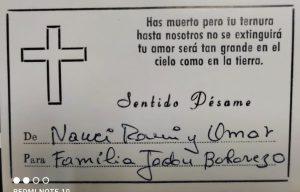 Has muerto pero tu ternura
hasta nosotros no se extinguirá
tu amor será tan grande en el
cielo como en la tierra.
Sentido Pésame
De Nauci y Omar
Para Familia
REDMI NOTE 10